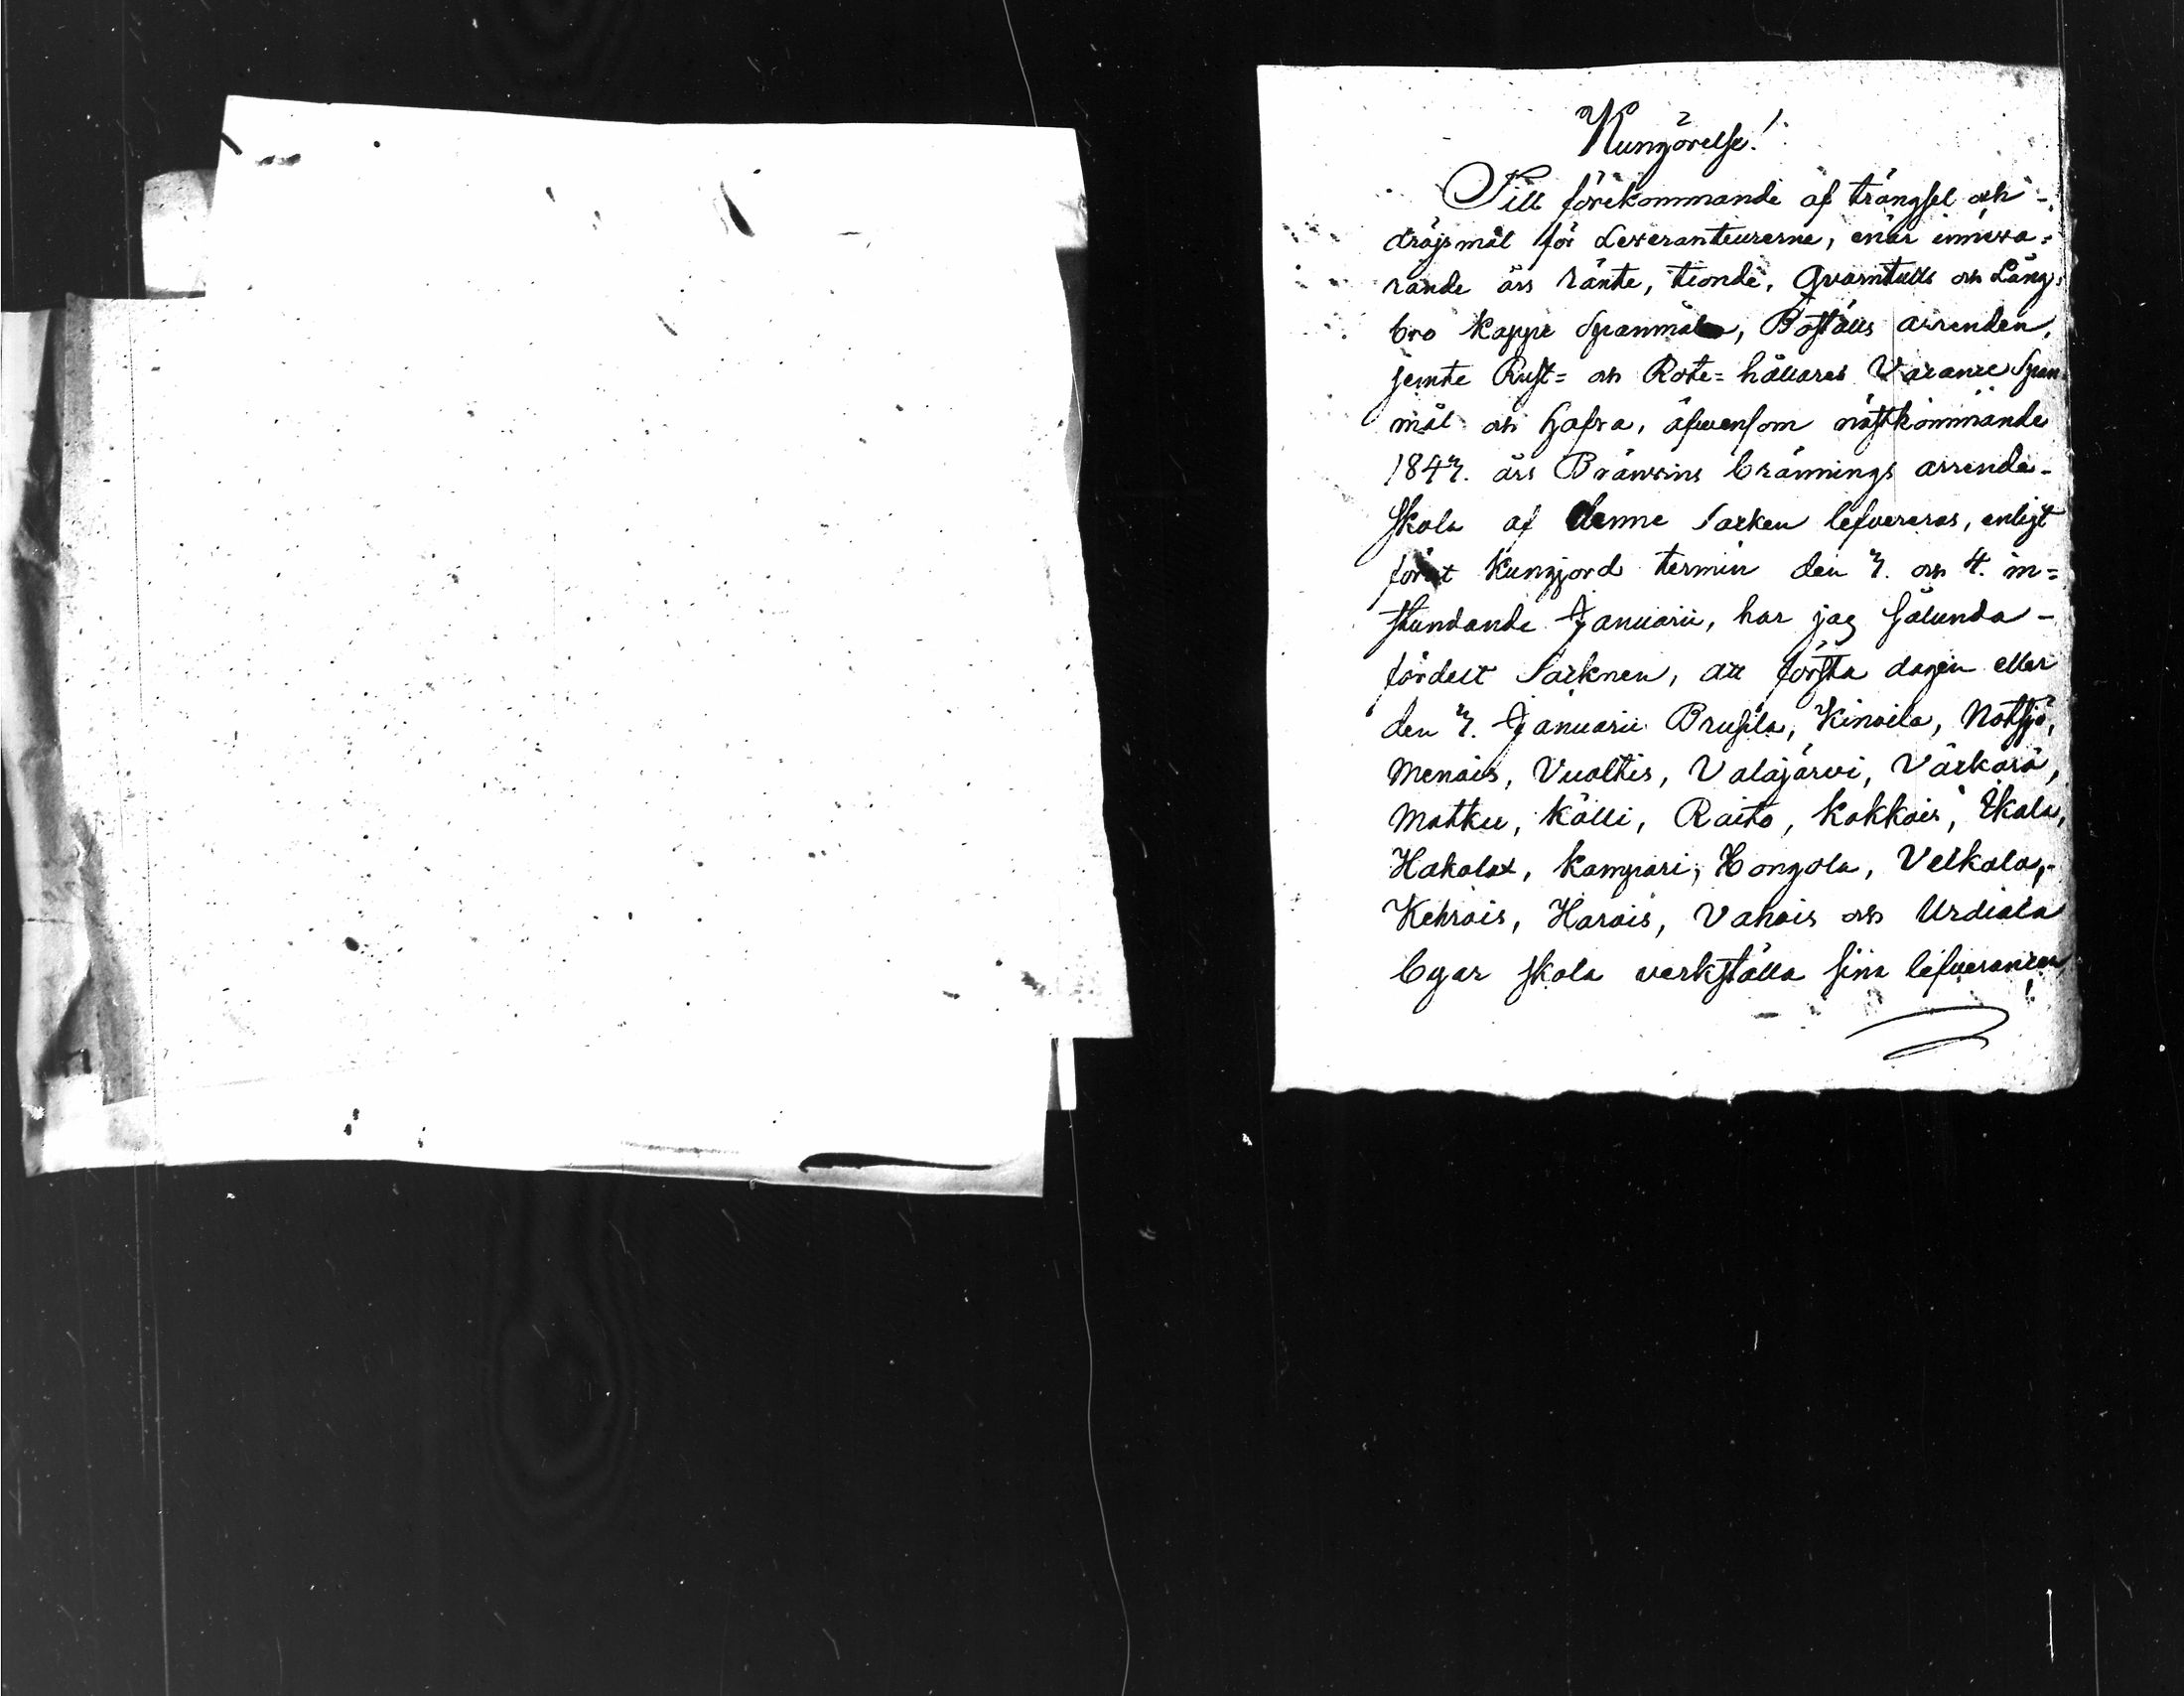 Kungörelse!
Till förekommande af trängsel och
dröjsmål för Leveranteurerne, enär inneva=
rande års ränte, tionde, Qvarntulls och Lång=
bro kappe Spanmål, Boställs arrenden,
jemte Rust= och Rote= hållares Vacance Span=
mål och Hafra, äfvensom nästkommande
1843. års Bränvins brännings arrende
skola af denne Socken lefvereras, enligt
förut kungjord termin den 3. och 4. in=
stundande Januarii, har jag sålunda
fördelt Socknen, att första dagen eller
den 3. Januarii Brusila, Kinoila, Notsjö,
Menois, Vuoltis, Valajärvi, Värkärä,
Matku, Kölli, Raito, Kokkois, Ikala,
Hakolax, Kampari, Hongola, Velkala,
Kehrois, Harois, Vahois och Urdiala
byar skola verkställa sina lefverancer